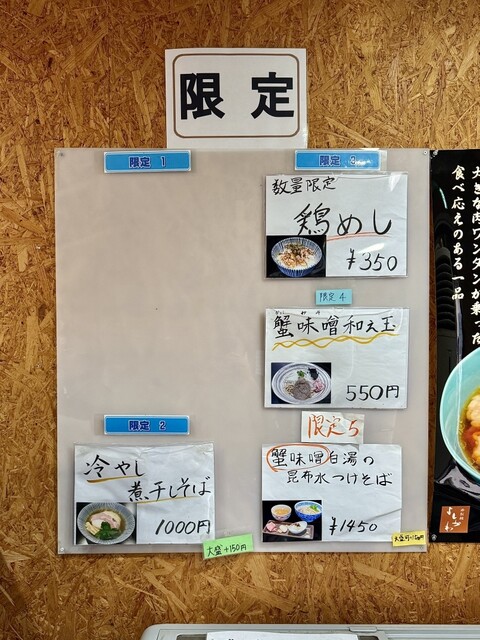 限定
限定 1
限定 2
冷やし
煮干しそば
1000円
大盛+150円
限定 3
数量限定
鶏めし
¥350
限定 4
蟹味噌和え玉
550円
限定5
蟹味噌白湯の
昆布水つけそば
¥1450
大きな肉ワンタンが乗った
食べ応えのある一品